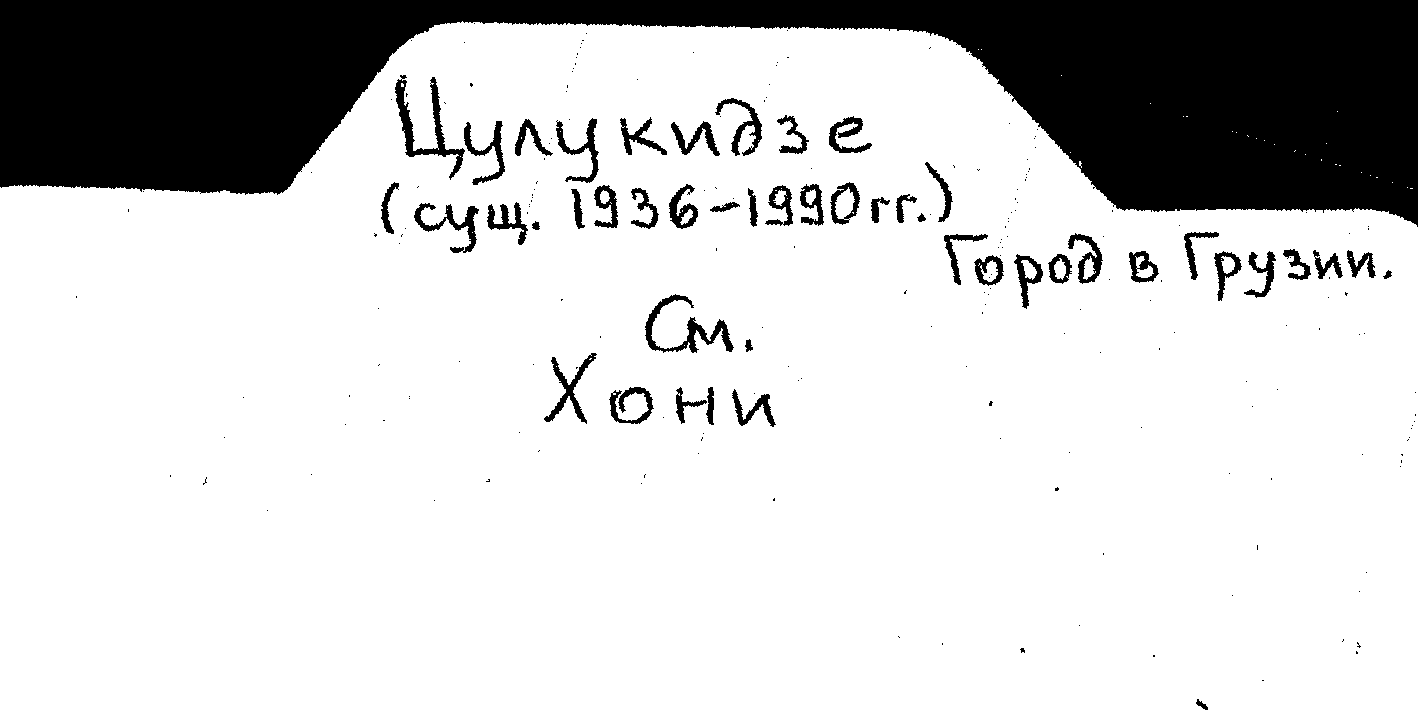 Цулукидзе
(сущ. 1936-1990гг.)
Город в Грузии.
См.
Хони